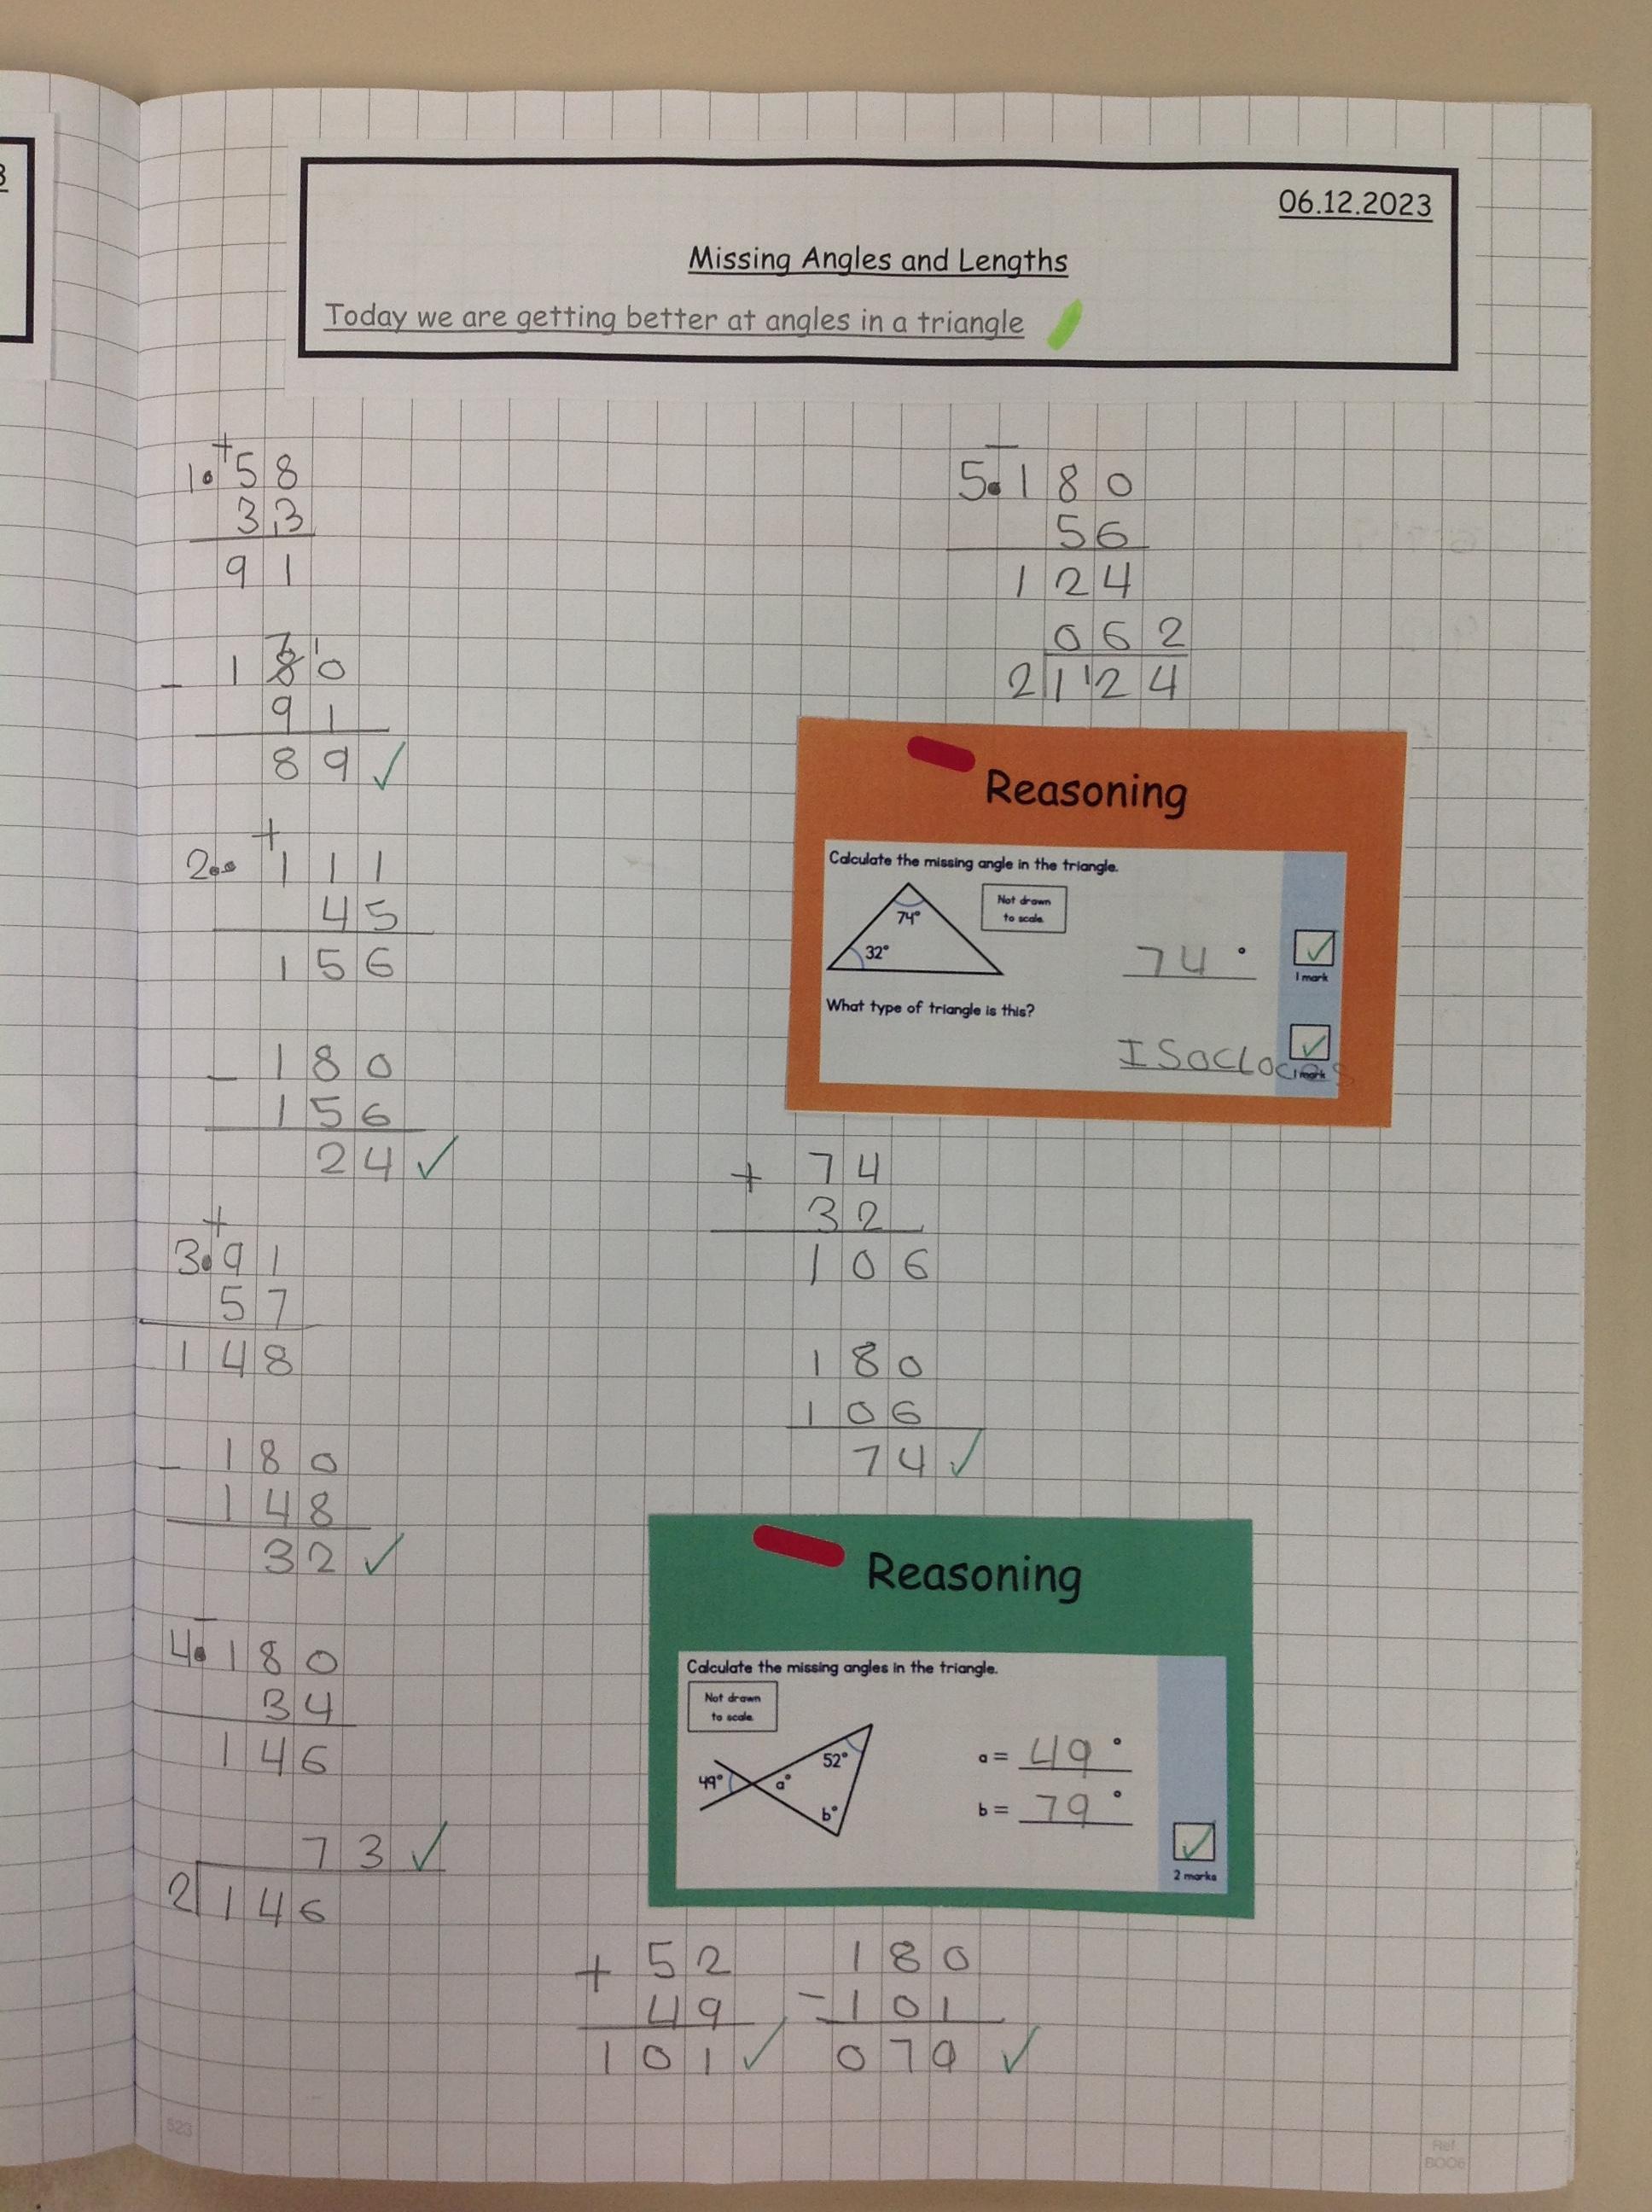 06.12.2023
Missing Angles and Lengths
Today we are getting better at angles in a triangle
+
1. 58
33
91
7 1
- 180
91
89 ✓
+
2. 111
45
156
- 180
156
24 ✓
+
3. 91
57
148
- 180
148
32 ✓
-
4. 180
34
146
73 ✓
2 146
-
5. 180
56
124
062
2 1124
Reasoning
Calculate the missing angle in the triangle.
74°
32°
Not drawn
to scale
74 °
✓
1 mark
What type of triangle is this?
ISOCLOCES
✓
1 mark
+ 74
32
106
180
106
74 ✓
Reasoning
Calculate the missing angles in the triangle.
Not drawn
to scale
49°
a°
52°
b°
a = 49 °
b = 79 °
✓
2 marks
+ 52
49
101 ✓
180
- 101
079 ✓
523
Ref